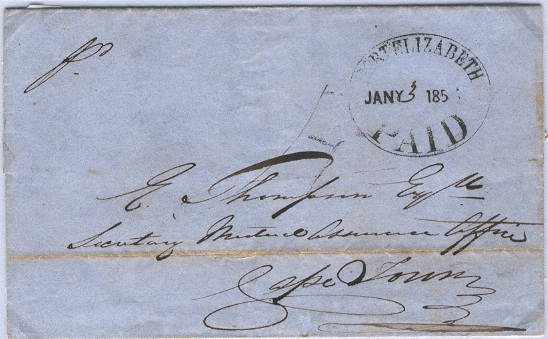 PORT ELIZABETH
JANY 3 185
PAID
E. Thompson Esqre
Secretary Mutual Assurance Office
Cape Town